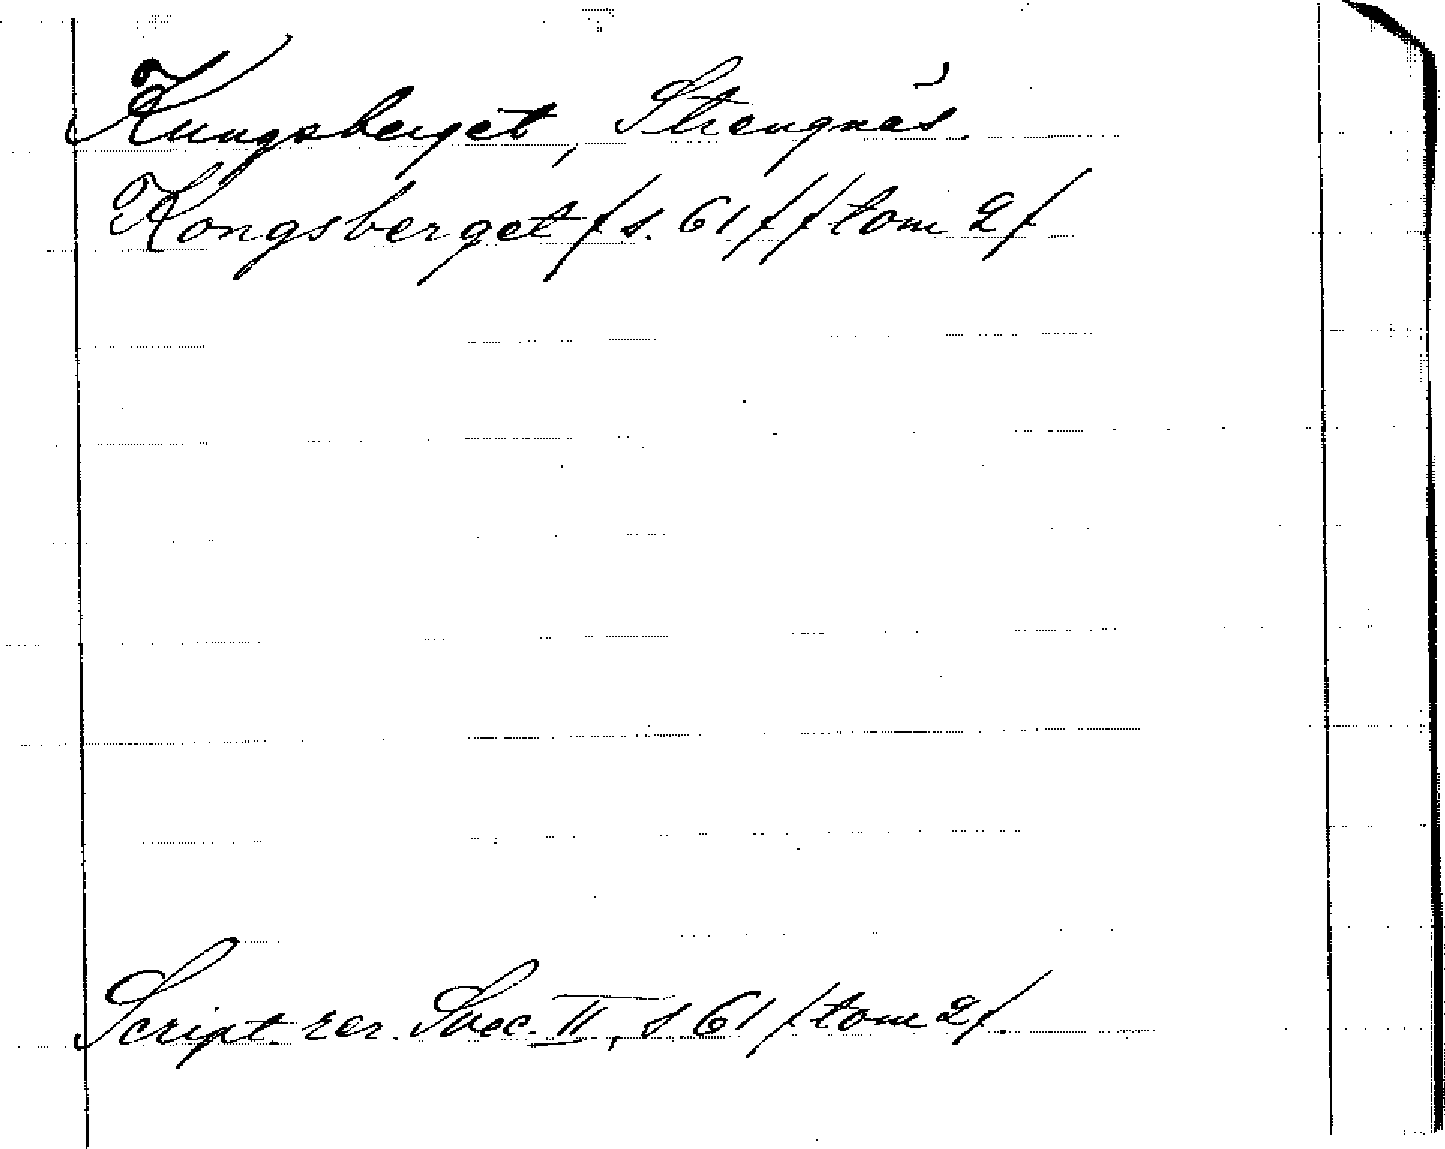 Kungsberget, Strengnäs.
Kongsberget /s. 61/ /tom 2/
Script. rer. Svec. II, s. 61 /tom 2/.